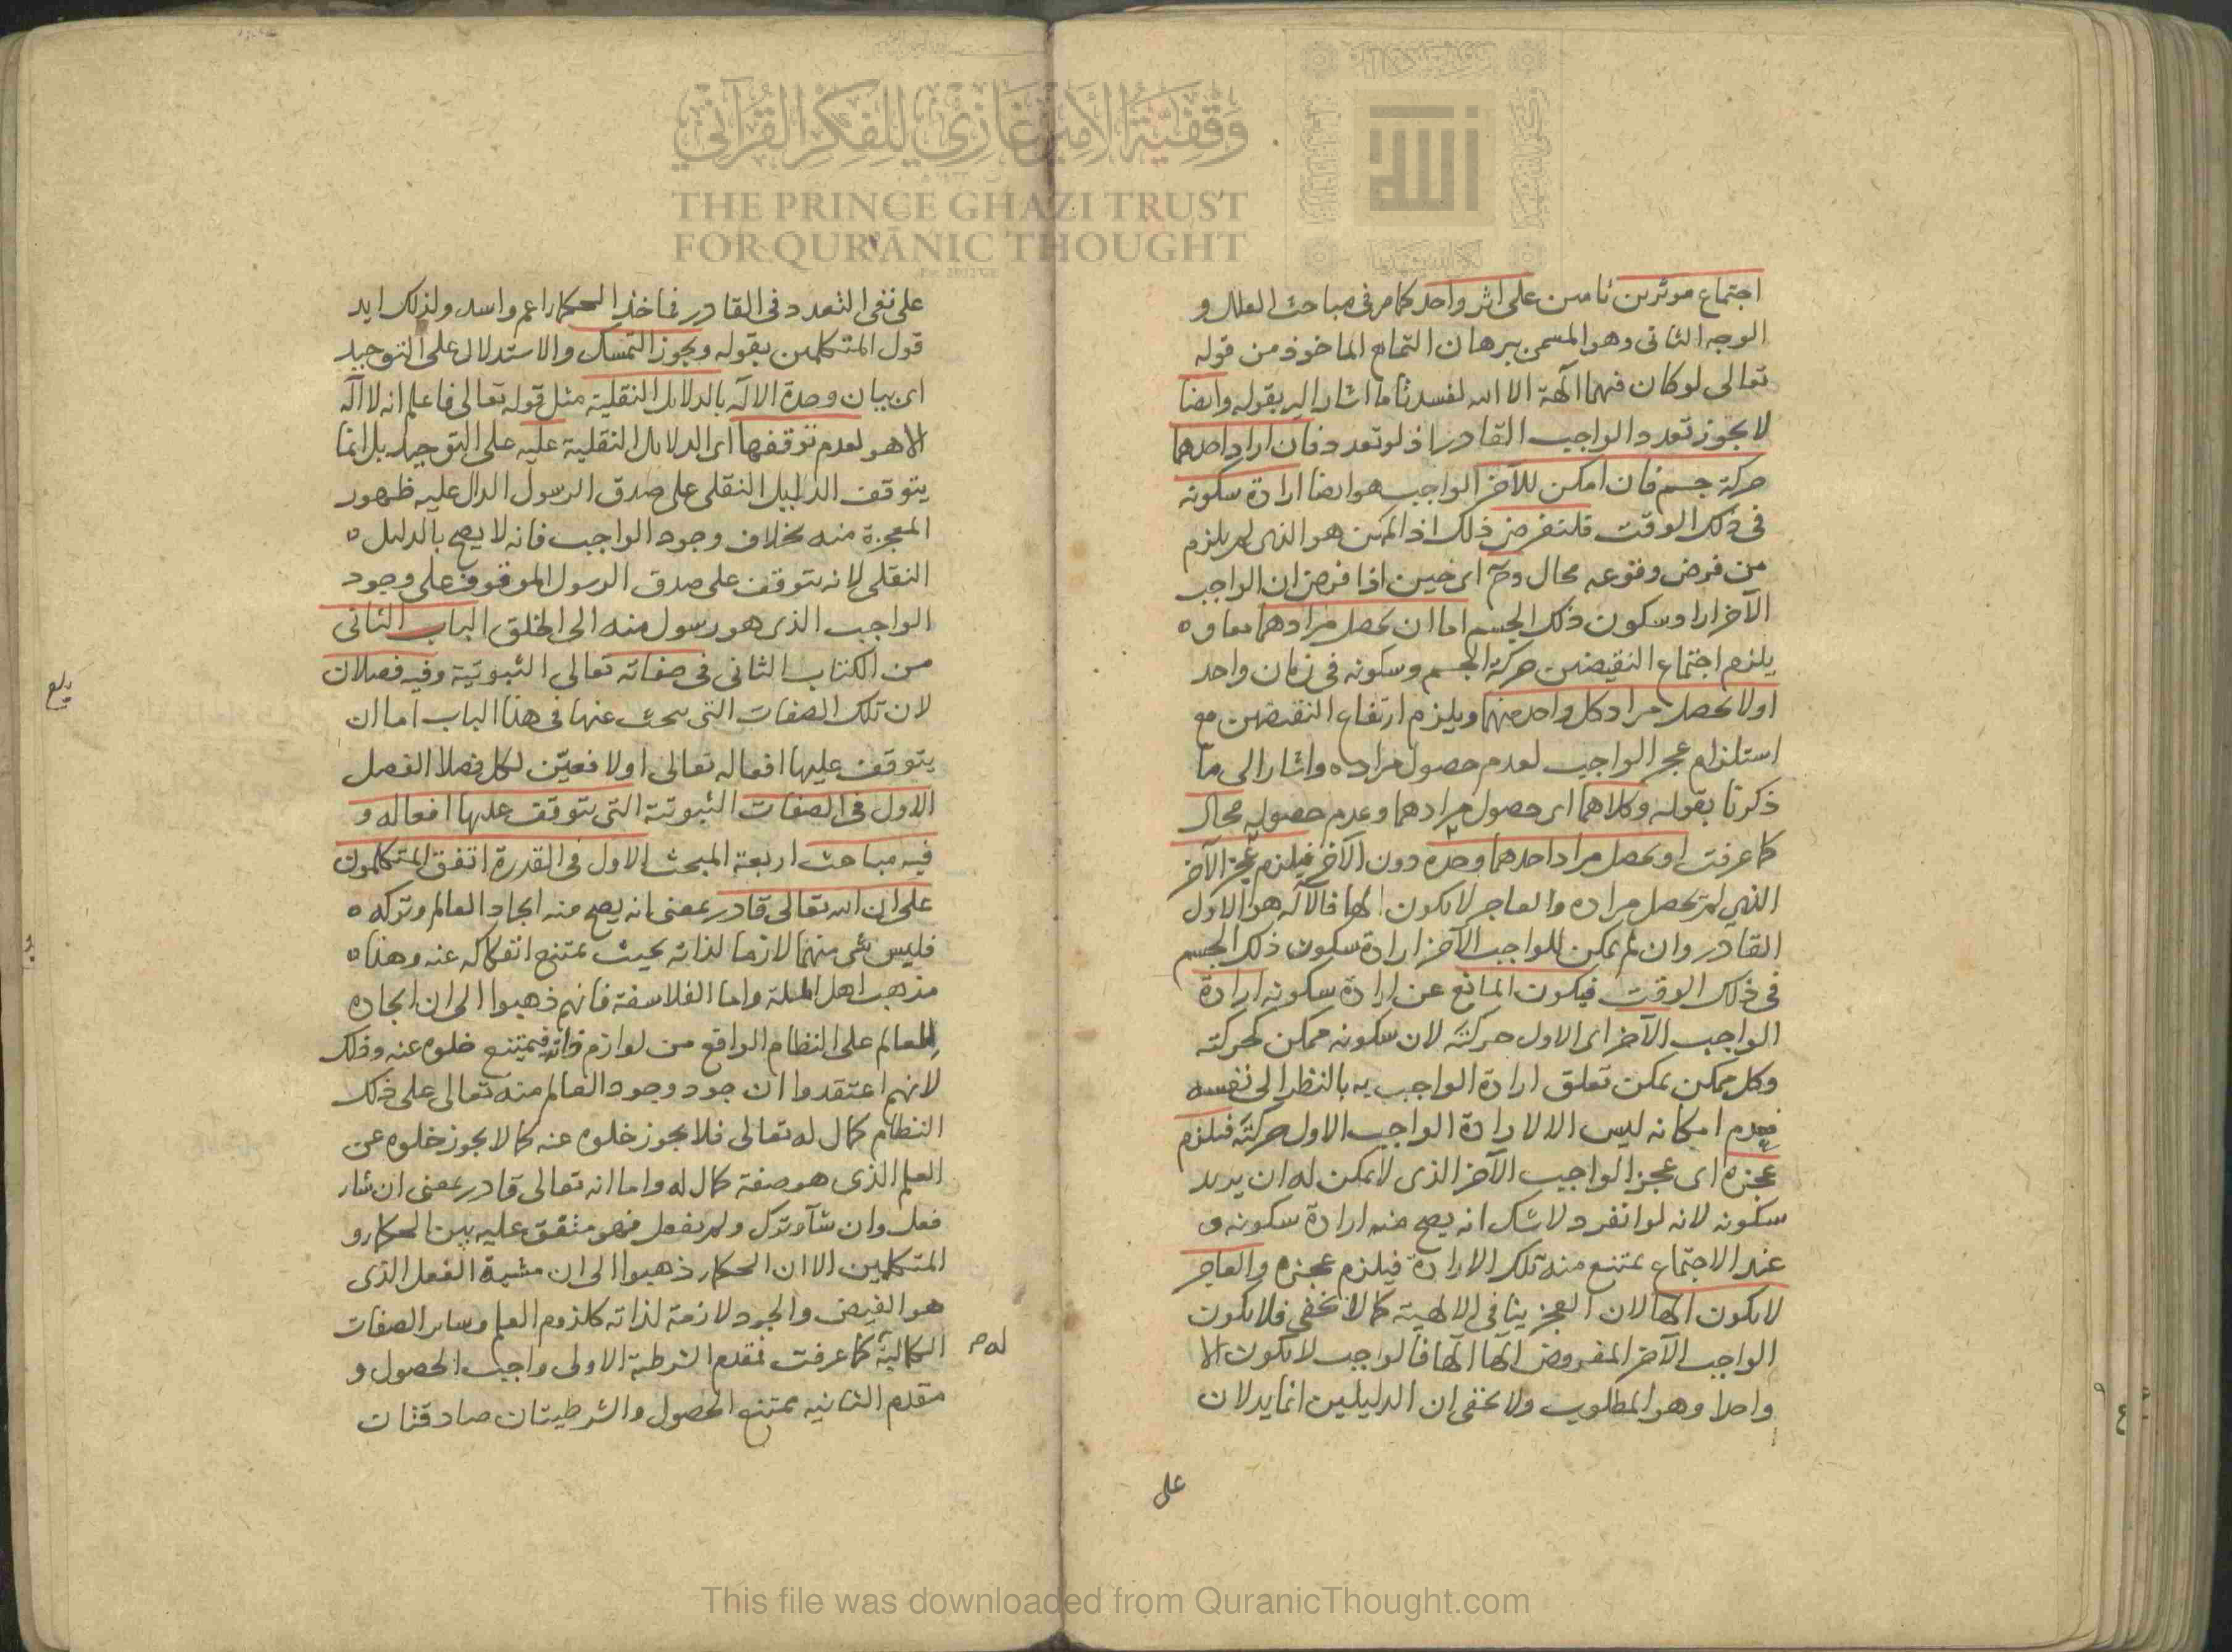 اجتماع موثرين تامين على اثر واحد كما مر في مباحث العلل و
الوجه الثاني وهو المسمى ببرهان التمانع الماخوذ من قوله
تعالى لو كان فيهما آلهة الا الله لفسدتا ما اشار اليه بقوله وايضا
لا يجوز تعدد الواجب القادر اذ لو تعدد فان اراد احدهما
حركة جسم فان امكن للآخر الواجب هو ايضا ارادة سكونه
في ذلك الوقت فلنفرض ذلك اذ الممكن هو الذي لم يلزم
من فرض وقوعه محال وح اى حين اذا فرض ان الواجب
الآخر اراد سكون ذلك الجسم اما ان يحصل مرادهما معا و
يلزم اجتماع النقيضين حركة الجسم وسكونه في زمان واحد
او لا يحصل مراد كل واحد منهما ويلزم ارتفاع النقيضين مع
استلزام عجز الواجب لعدم حصول مراده واشار الى ما
ذكرنا بقوله وكلاهما اى حصول مرادهما وعدم حصوله محال
كما عرفت او يحصل مراد احدهما وحده دون الآخر فيلزم عجز الآخر
الذي لم يحصل مراده والعاجز لا يكون الها فالآله هو الاول
القادر وان لم يمكن للواجب الآخر ارادة سكون ذلك الجسم
في ذلك الوقت فيكون المانع عن ارادة سكونه ارادة
الواجب الآخر اى الاول حركته لان سكونه ممكن كحركته
وكل ممكن يمكن تعلق ارادة الواجب به بالنظر الى نفسه
فعدم امكانه ليس الا لارادة الواجب الاول حركته فيلزم
عجزه اى عجز الواجب الآخر الذي لا يمكن له ان يريد
سكونه لانه لو انفرد لا شك انه يصح منه ارادة سكونه و
عند الاجتماع يمتنع منه تلك الارادة فيلزم عجزه والعاجز
لا يكون الها لان العجز ينافي الالهية كما لا يخفى فلا يكون
الواجب الآخر المفروض الها الها فالواجب لا يكون الا
واحدا وهو المطلوب ولا يخفى ان الدليلين انما يدلان
على
على نفي التعدد في القادر فماخذ الحكماء اعم واسد ولذلك ايد
قول المتكلمين بقوله ويجوز التمسك والاستدلال على التوحيد
اى بيان وحدة الاله بالدلايل النقلية مثل قوله تعالى فاعلم انه لا اله
الا هو لعدم توقفها اى الدلايل النقلية عليه على التوحيد بل انما
يتوقف الدليل النقلي على صدق الرسول الدال عليه ظهور
المعجزة منه بخلاف وجود الواجب فانه لا يصح بالدليل
النقلي لانه يتوقف على صدق الرسول الموقوف على وجود
الواجب الذي هو رسول منه الى الخلق الباب الثاني
من الكتاب الثاني في صفاته تعالى الثبوتية وفيه فصلان
لان تلك الصفات التي يبحث عنها في هذا الباب اما ان
يتوقف عليها افعاله تعالى او لا فعين لكل فصلا الفصل
الاول في الصفات الثبوتية التي يتوقف عليها افعاله و
فيه مباحث اربعة المبحث الاول في القدرة اتفق المتكلمون
على ان الله تعالى قادر بمعنى انه يصح منه ايجاد العالم وتركه
فليس شي منهما لازما لذاته بحيث يمتنع انفكاكه عنه وهذا
مذهب اهل الملة واما الفلاسفة فانهم ذهبوا الى ان ايجاده
للعالم على النظام الواقع من لوازم ذاته فيمتنع خلوه عنه وذلك
لانهم اعتقدوا ان جود وجود العالم منه تعالى على ذلك
النظام كمال له تعالى فلا يجوز خلوه عنه كما لا يجوز خلوه عن
العلم الذي هو صفة كمال له واما انه تعالى قادر بمعنى ان شاء
فعل وان شآء ترك ولم يفعل فهو متفق عليه بين الحكماء و
المتكلمين الا ان الحكماء ذهبوا الى ان مشية الفعل الذي
هو الفيض والجود لازمة لذاته كلزوم العلم وساير الصفات
الكمالية كما عرفت فمقدم الشرطية الاولى واجب الحصول و
له م
مقدم الثانية ممتنع الحصول والشرطيتان صادقتان
بلغ
وقفية الأمير غازي للفكر القرآني
THE PRINCE GHAZI TRUST
FOR QUR'ĀNIC THOUGHT
This file was downloaded from QuranicThought.com